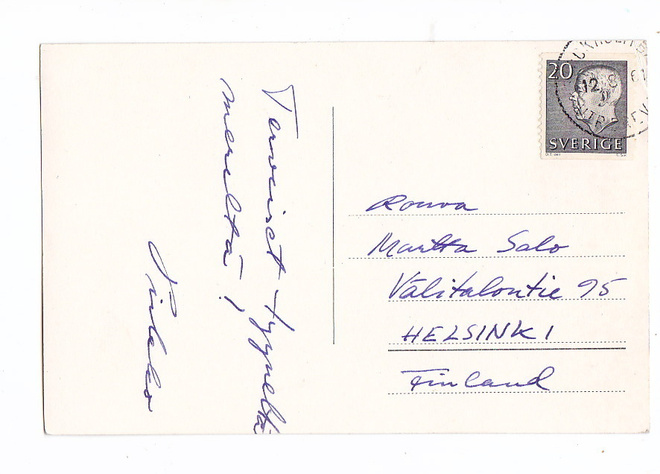 Terveiset tyyneltä
mereltä!
Pirkko
20
SVERIGE
Rouva
Martta Salo
Välitalontie 95
HELSINKI
Finland